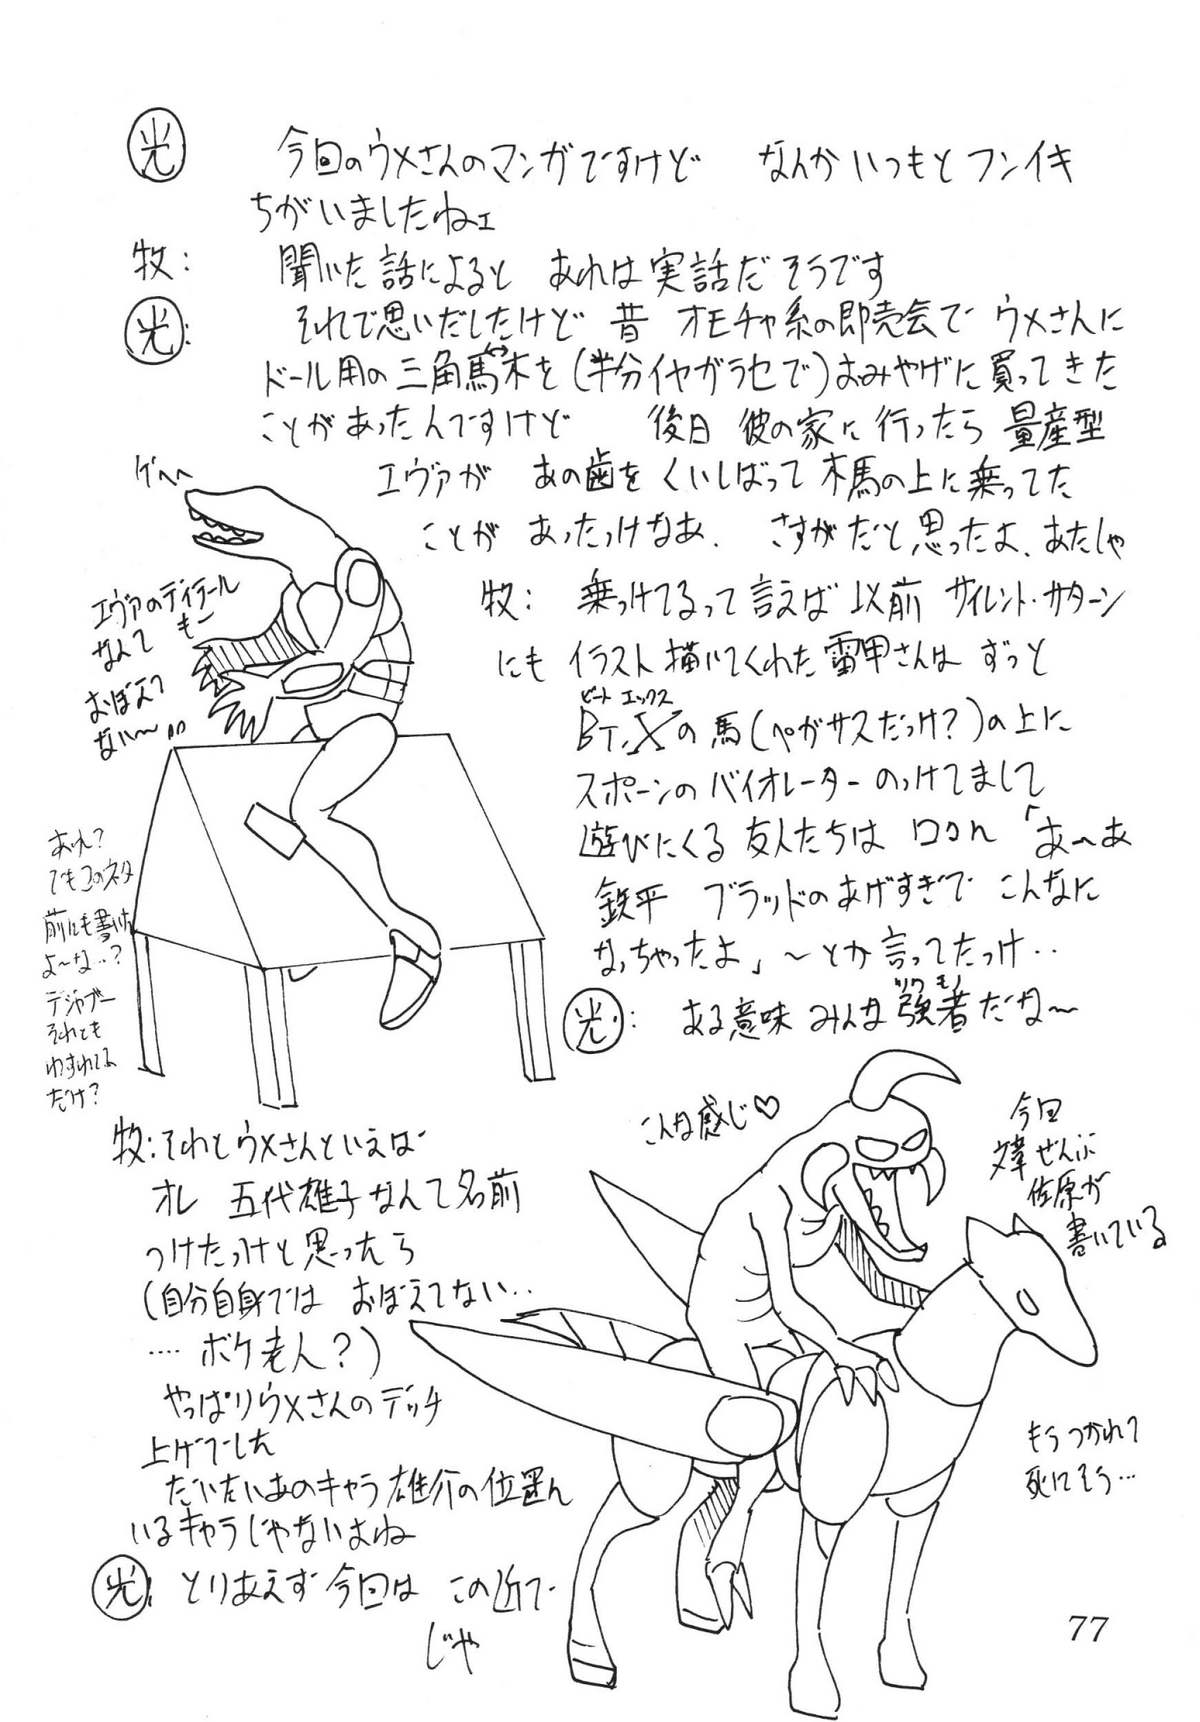 光 今回のウメさんのマンガですけど なんかいつもとフンイキ
ちがいましたねェ
牧: 聞いた話によると あれは実話だそうです
光: それで思いだしたけど 昔 オモチャ系の即売会で ウメさんに
ドール用の三角馬木を(半分イヤガラセで)おみやげに買ってきた
ことがあったんですけど 後日 彼の家に行ったら 量産型
エヴァが あの歯をくいしばって木馬の上に乗ってた
ことが あったっけなあ. さすがだと思ったよ、あたしゃ
ゲヘヘ
エヴァのディテール
なんて もー
おぼえて
ない〜
牧: 乗っけてるって言えば 以前 サイレント・サターン
にも イラスト描いてくれた雷甲さんは ずっと
ビート エックス
BT.Xの馬(ペガサスだっけ?)の上に
スポーンのバイオレーターのっけてまして
遊びにくる友人たちは 口々に「あ〜あ
鉄平 ブラッドのあげすぎで こんなに
なっちゃったよ」〜とか言ってたっけ..
あれ?
でもこのネタ
前にも書いた
よ〜な..?
デジャブー
それとも
わすれてる
だけ?
光: ある意味 みんな強者だな〜
ツワ モノ
牧: それとウメさんといえば
オレ 五代雄子なんて名前
つけたっけと思ったら
(自分自身では おぼえてない..
.... ボケ老人?)
やっぱりウメさんのデッチ
上げでした
だいたいあのキャラ雄介の位置に
いるキャラじゃないよね
光: とりあえず今回は この辺で
じゃ
こんな感じ♡
今回
文章ぜんぶ
佐原が
書いている
もうつかれて
死にそう...
77